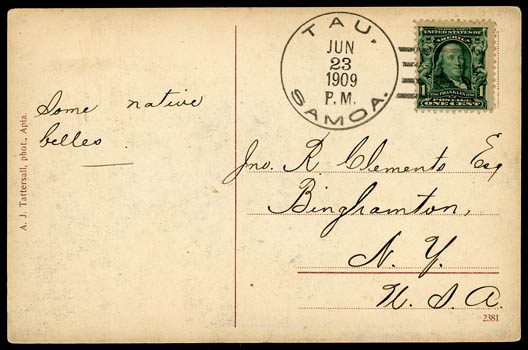 TAU,
JUN
23
1909
P.M.
SAMOA.
UNITED STATES OF
AMERICA
1 FRANKLIN 1
POSTAGE
ONE CENT
Some native
belles
A. J. Tattersall, phot., Apia.
Jno. R. Clements Esq
Binghamton,
N. Y.
U. S. A.
2381